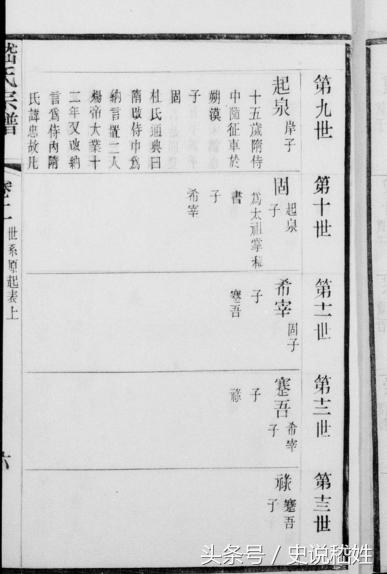 第九世
起泉 岸子
十五歲隋侍
中箇征車於
朔漠
子
固
杜氏通典曰
隋改侍中為
納言置二人
煬帝大業十
二年又改納
言為侍內隋
氏諱忠故凡
第十世
固 起泉子
為太祖掌秘
書
子
希宰
第十一世
希宰 固子
子
蹇吾
第十二世
蹇吾 希宰子
子
祿
第十三世
祿 蹇吾子
氏宗譜
世系原起表上
六
头条号 / 史说嵇姓